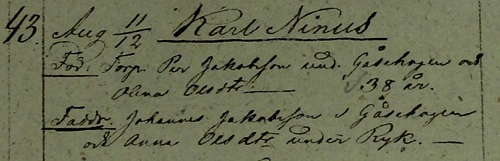 43. Aug 11/12 Karl Ninus
Föd. Torp. Per Jakobsson und. Gåsehagen och
Olena Olsdtr — 38 år.
Faddr. Johannes Jakobsson i Gåsehagen
och Anna Olsdtr under Ryk. —